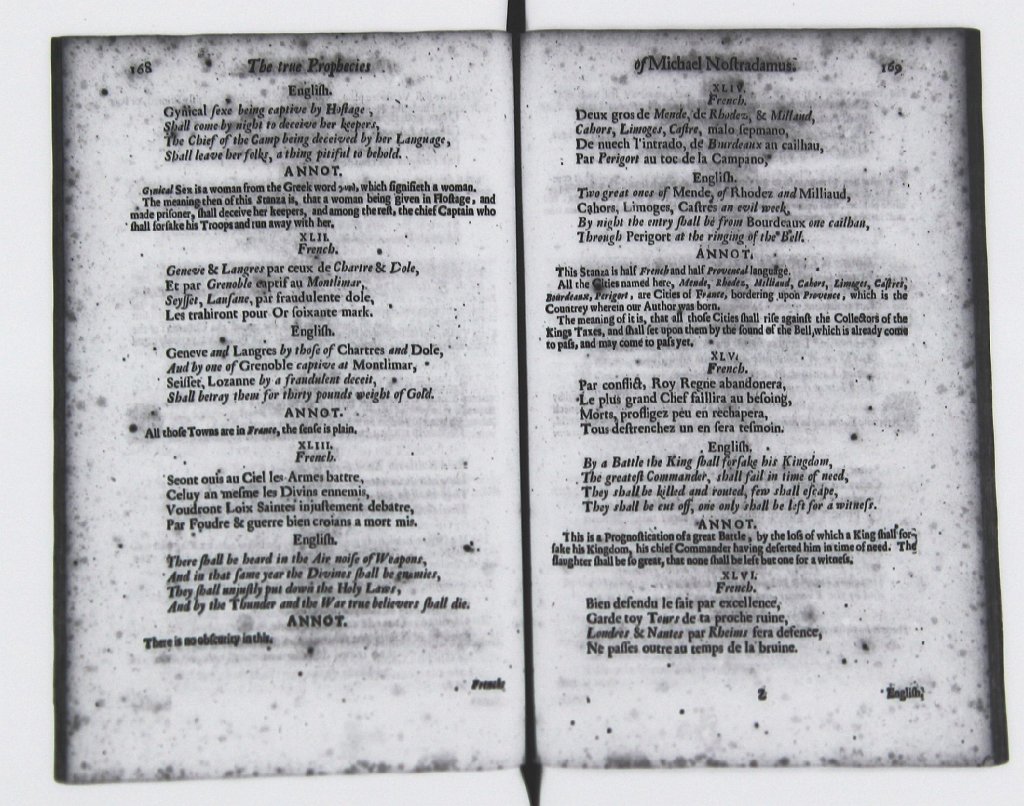 168
The true Prophecies
English.
Gynical ſexe being captive by Hoſtage,
Shall come by night to deceive her keepers,
The Chief of the Camp being deceived by her Language,
Shall leave her folks, a thing pitiful to behold.
ANNOT.
Gynical Sex is a woman from the Greek word γυνὴ, which ſignifieth a woman.
The meaning then of this Stanza is, that a woman being given in Hoſtage, and
made priſoner, ſhall deceive her keepers, and among the reſt, the chief Captain who
ſhall forſake his Troops and run away with her.
XLII.
French.
Geneve & Langres par ceux de Chartre & Dole,
Et par Grenoble captif au Montlimar,
Seyſſet, Lauſane, par fraudulente dole,
Les trahiront pour Or ſoixante mark.
Engliſh.
Geneve and Langres by thoſe of Chartres and Dole,
And by one of Grenoble captive at Montlimar,
Seiſſet, Lozanne by a fraudulent deceit,
Shall betray them for thirty pounds weight of Gold.
ANNOT.
All thoſe Towns are in France, the ſenſe is plain.
XLIII.
French.
Seont ouis au Ciel les Armes battre,
Celuy an meſme les Divins ennemis,
Voudront Loix Saintes injuſtement debatre,
Par Foudre & guerre bien croians a mort mis.
Engliſh.
There ſhall be heard in the Air noiſe of Weapons,
And in that ſame year the Divines ſhall be enemies,
They ſhall unjuſtly put down the Holy Laws,
And by the Thunder and the War true believers ſhall die.
ANNOT.
There is no obſcurity in this.
French
of Michael Noſtradamus.
169
XLIV.
French.
Deux gros de Mende, de Rhodez, & Millaud,
Cahors, Limoges, Caſtre, malo ſepmano,
De nuech l'intrado, de Bourdeaux au cailhau,
Par Perigort au toc de la Campano,
Engliſh.
Two great ones of Mende, of Rhodez and Milliaud,
Cahors, Limoges, Caſtres an evil week,
By night the entry ſhall be from Bourdeaux one cailhau,
Through Perigort at the ringing of the Bell.
ANNOT.
This Stanza is half French and half Provencal language.
All the Cities named here, Mende, Rhodez, Milliaud, Cahors, Limoges, Caſtres,
Bourdeaux, Perigort, are Cities of France, bordering upon Provence, which is the
Countrey wherein our Author was born.
The meaning of it is, that all thoſe Cities ſhall riſe againſt the Collectors of the
Kings Taxes, and ſhall ſet upon them by the ſound of the Bell, which is already come
to paſs, and may come to paſs yet.
XLV.
French.
Par conflict, Roy Regne abandonera,
Le plus grand Chef faillira au beſoing,
Morts, profligez peu en rechapera,
Tous deſtrenchez un en ſera teſmoin.
Engliſh.
By a Battle the King ſhall forſake his Kingdom,
The greateſt Commander, ſhall fail in time of need,
They ſhall be killed and routed, few ſhall eſcape,
They ſhall be cut off, one only ſhall be left for a witneſs.
ANNOT.
This is a Prognoſtication of a great Battle, by the loſs of which a King ſhall for-
ſake his Kingdom, his chief Commander having deſerted him in time of need. The
ſlaughter ſhall be ſo great, that none ſhall be left but one for a witneſs.
XLVI.
French.
Bien defendu le fait par excellence,
Garde toy Tours de ta proche ruine,
Londres & Nantes par Rheims ſera defence,
Ne paſſes outre au temps de la bruine.
Z
Engliſh.